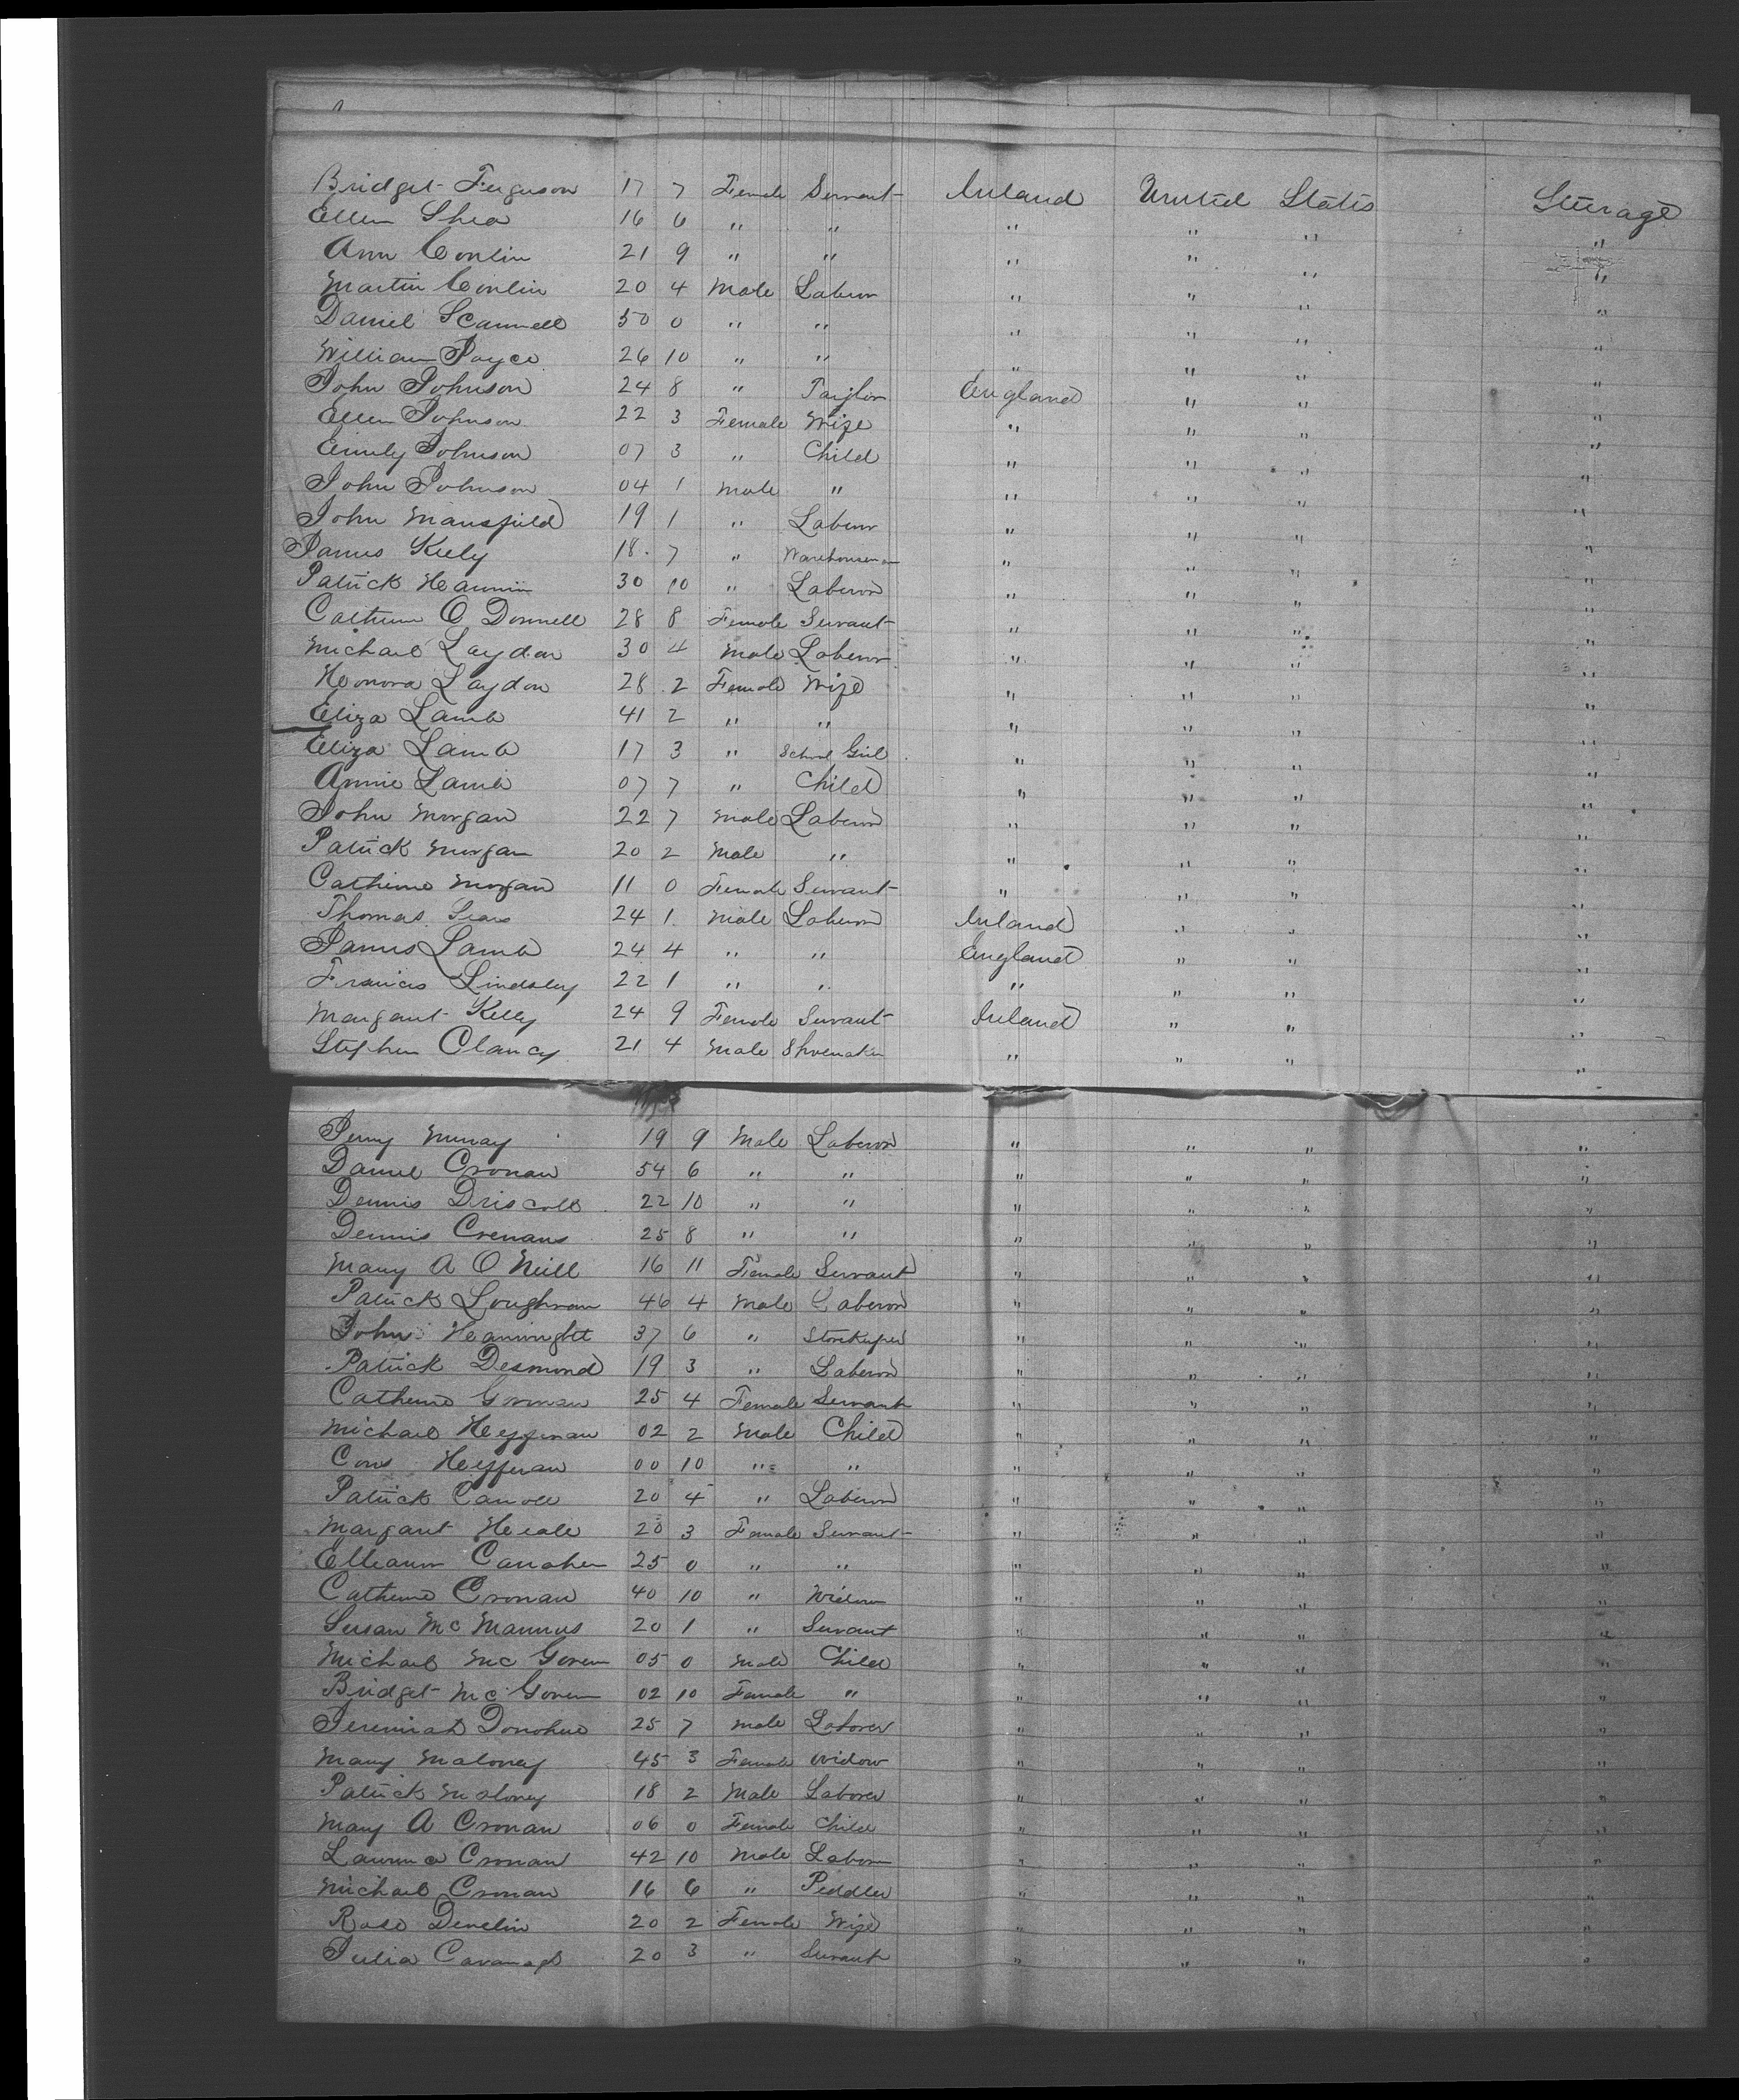 Bridget Ferguson 17 7 Female Servant Ireland United States Steerage
Ellen Shea 16 6 " " " " " "
Ann Conlin 21 9 " " " " " "
Martin Conlin 20 4 Male Laberor " " " "
Daniel Scannell 50 0 " " " " " "
William Joyce 26 10 " " " " " "
John Johnson 24 8 " Taylor England " " "
Ellen Johnson 22 3 Female Wife " " " "
Emily Johnson 07 3 " Child " " " "
John Johnson 04 1 Male " " " " "
John Mansfield 19 1 " Laberor " " " "
James Kiely 18 7 " Warehouseman " " " "
Patrick Heannin 30 10 " Laberor " " " "
Catherine O Donnell 28 8 Female Servant " " " "
Michael Laydon 30 4 Male Laberor " " " "
Honora Laydon 28 2 Female Wife " " " "
Eliza Lamb 41 2 " " " " " "
Eliza Lamb 17 3 " School Girl " " " "
Annie Lamb 07 7 " Child " " " "
John Morgan 22 7 Male Laberor " " " "
Patrick Morgan 20 2 Male " " " " "
Catherine Morgan 11 0 Female Servant " " " "
Thomas 24 1 Male Laberor Ireland " " "
James Lamb 24 4 " " England " " "
Francis Lindsley 22 1 " " " " " "
Margaret Kelly 24 9 Female Servant Ireland " " "
Stephen Clancy 21 4 Male Shoemaker " " " "
Murray 19 9 Male Laberor " " " "
Daniel Cronan 54 6 " " " " " "
Dennis Driscoll 22 10 " " " " " "
Dennis Crenans 25 8 " " " " " "
Mary A O Neill 16 11 Female Servant " " " "
Patrick Loughran 46 4 Male Laberor " " " "
John 37 6 " Storekeeper " " " "
Patrick Desmond 19 3 " Laberor " " " "
Catherine Gorman 25 4 Female Servant " " " "
Michael Heffernan 02 2 Male Child " " " "
Heffernan 00 10 " " " " " "
Patrick Carroll 20 4 " Laberor " " " "
Margaret Heale 20 3 Female Servant " " " "
25 0 " " " " " "
Catherine Cronan 40 10 " Widow " " " "
Susan Mc Mannus 20 1 " Servant " " " "
Michael Mc Govern 05 0 Male Child " " " "
Bridget Mc Govern 02 10 Female " " " " "
Jeremiah Donohue 25 7 Male Laborer " " " "
Mary Maloney 45 3 Female Widow " " " "
Patrick Maloney 18 2 Male Laborer " " " "
Mary A Cronan 06 0 Female Child " " " "
Laurence Cronan 42 10 Male Labor " " " "
Michael Cronan 16 6 " Peddler " " " "
Rose Develin 20 2 Female Wife " " " "
Julia Cavanagh 20 3 " Servant " " " "